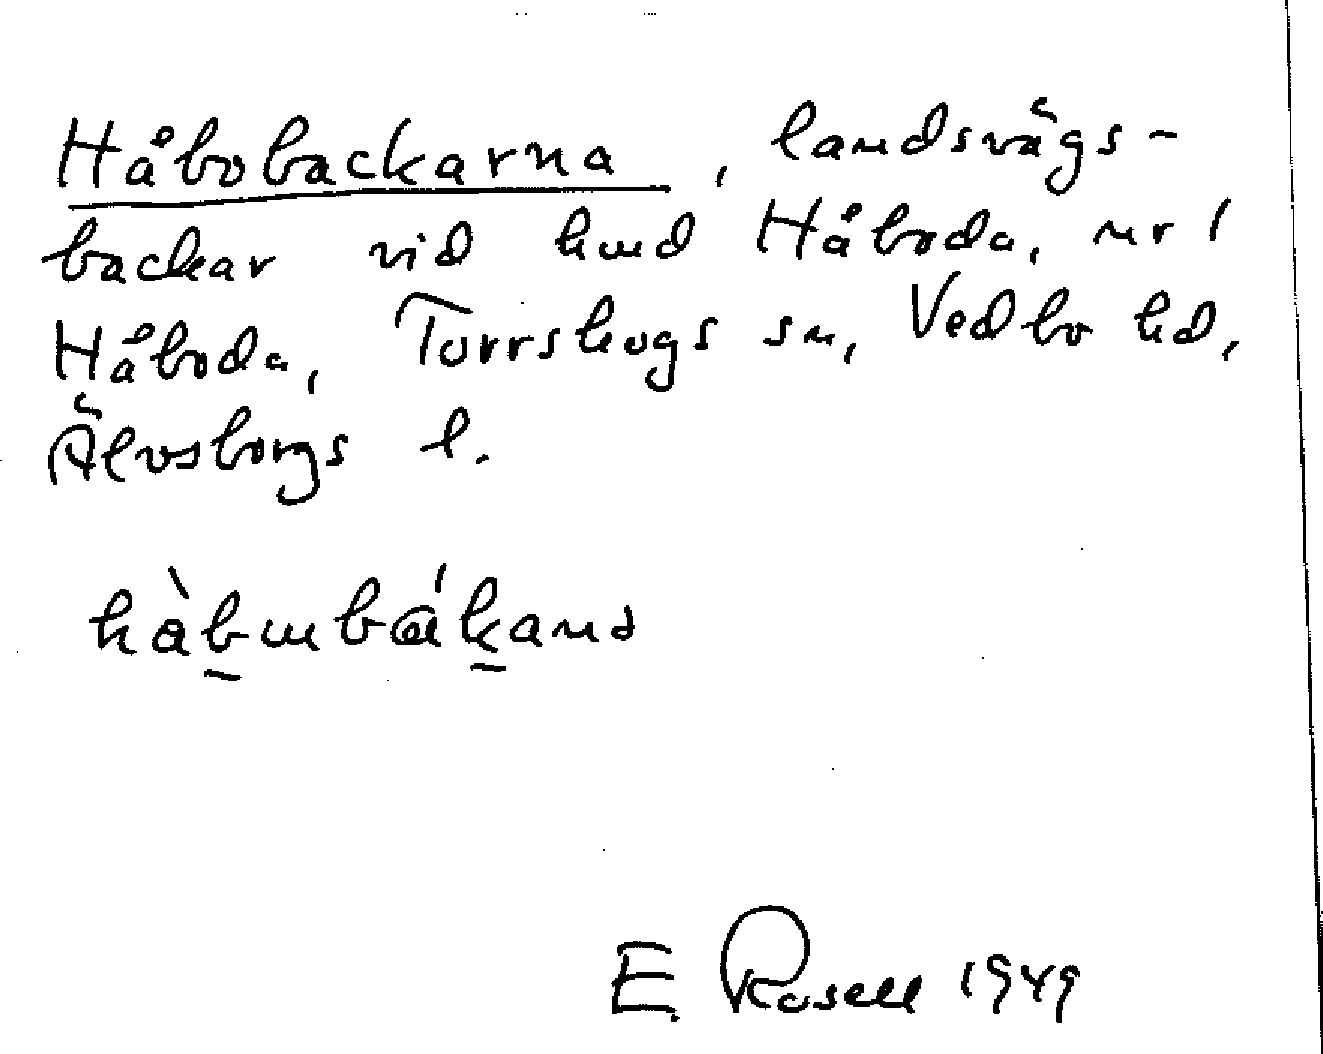 Håbobackarna, landsvägs-
backar vid hmd Håboda, nr 1
Håboda, Torrskogs sn, Vedbo hd,
Älvsborgs l.
E. Rosell 1949